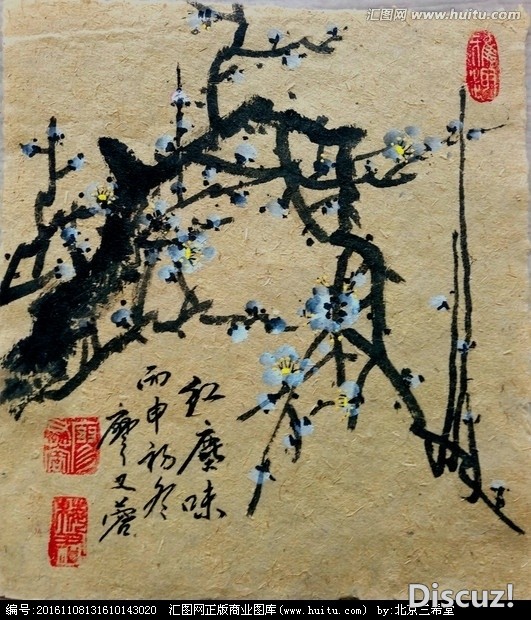 汇图网 www.huitu.com
红塵味
丙申初冬
廖又蓉
编号:20161108131610143020 汇图网正版商业图库(www.huitu.com) by:北京三希堂
Discuz!